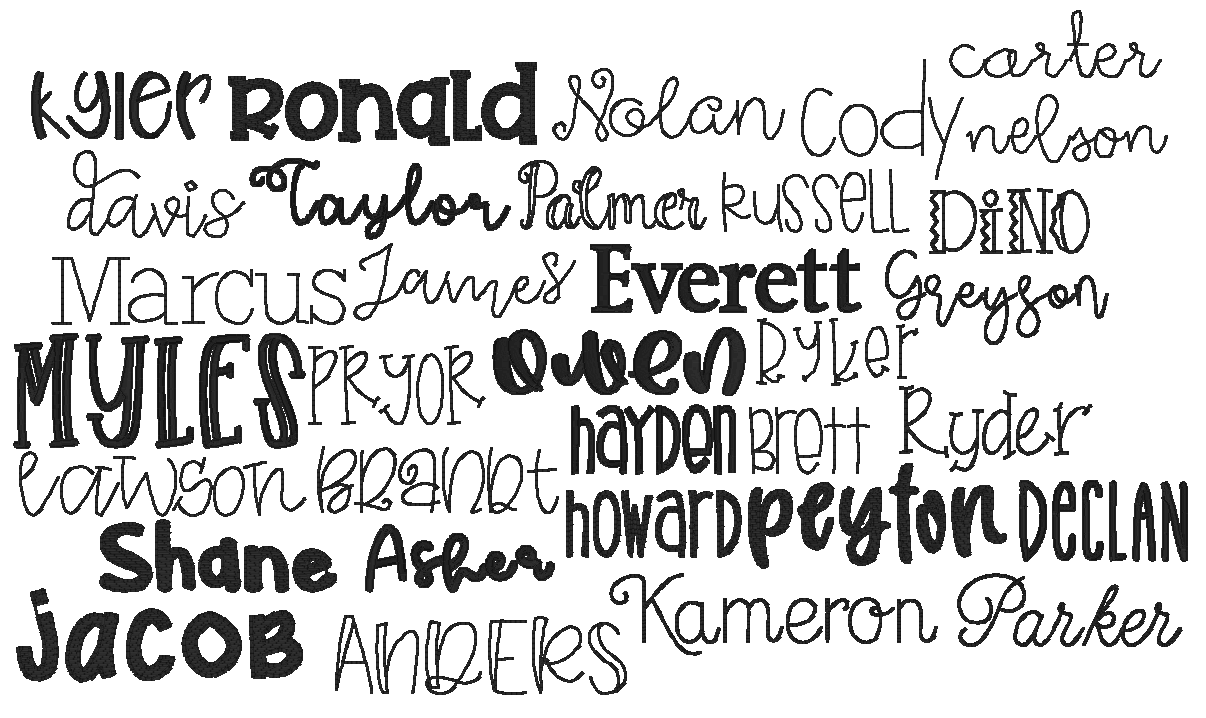 carter
kyler Ronald Nolan Cody nelson
davis Taylor Palmer Russell DiNO
Marcus James Everett Greyson
MYLES PRYOR Owen Ryker
hayden Brett Ryder
Lawson BRandt
howard peyton DECLAN
Shane Asher
jacob ANDERS Kameron Parker